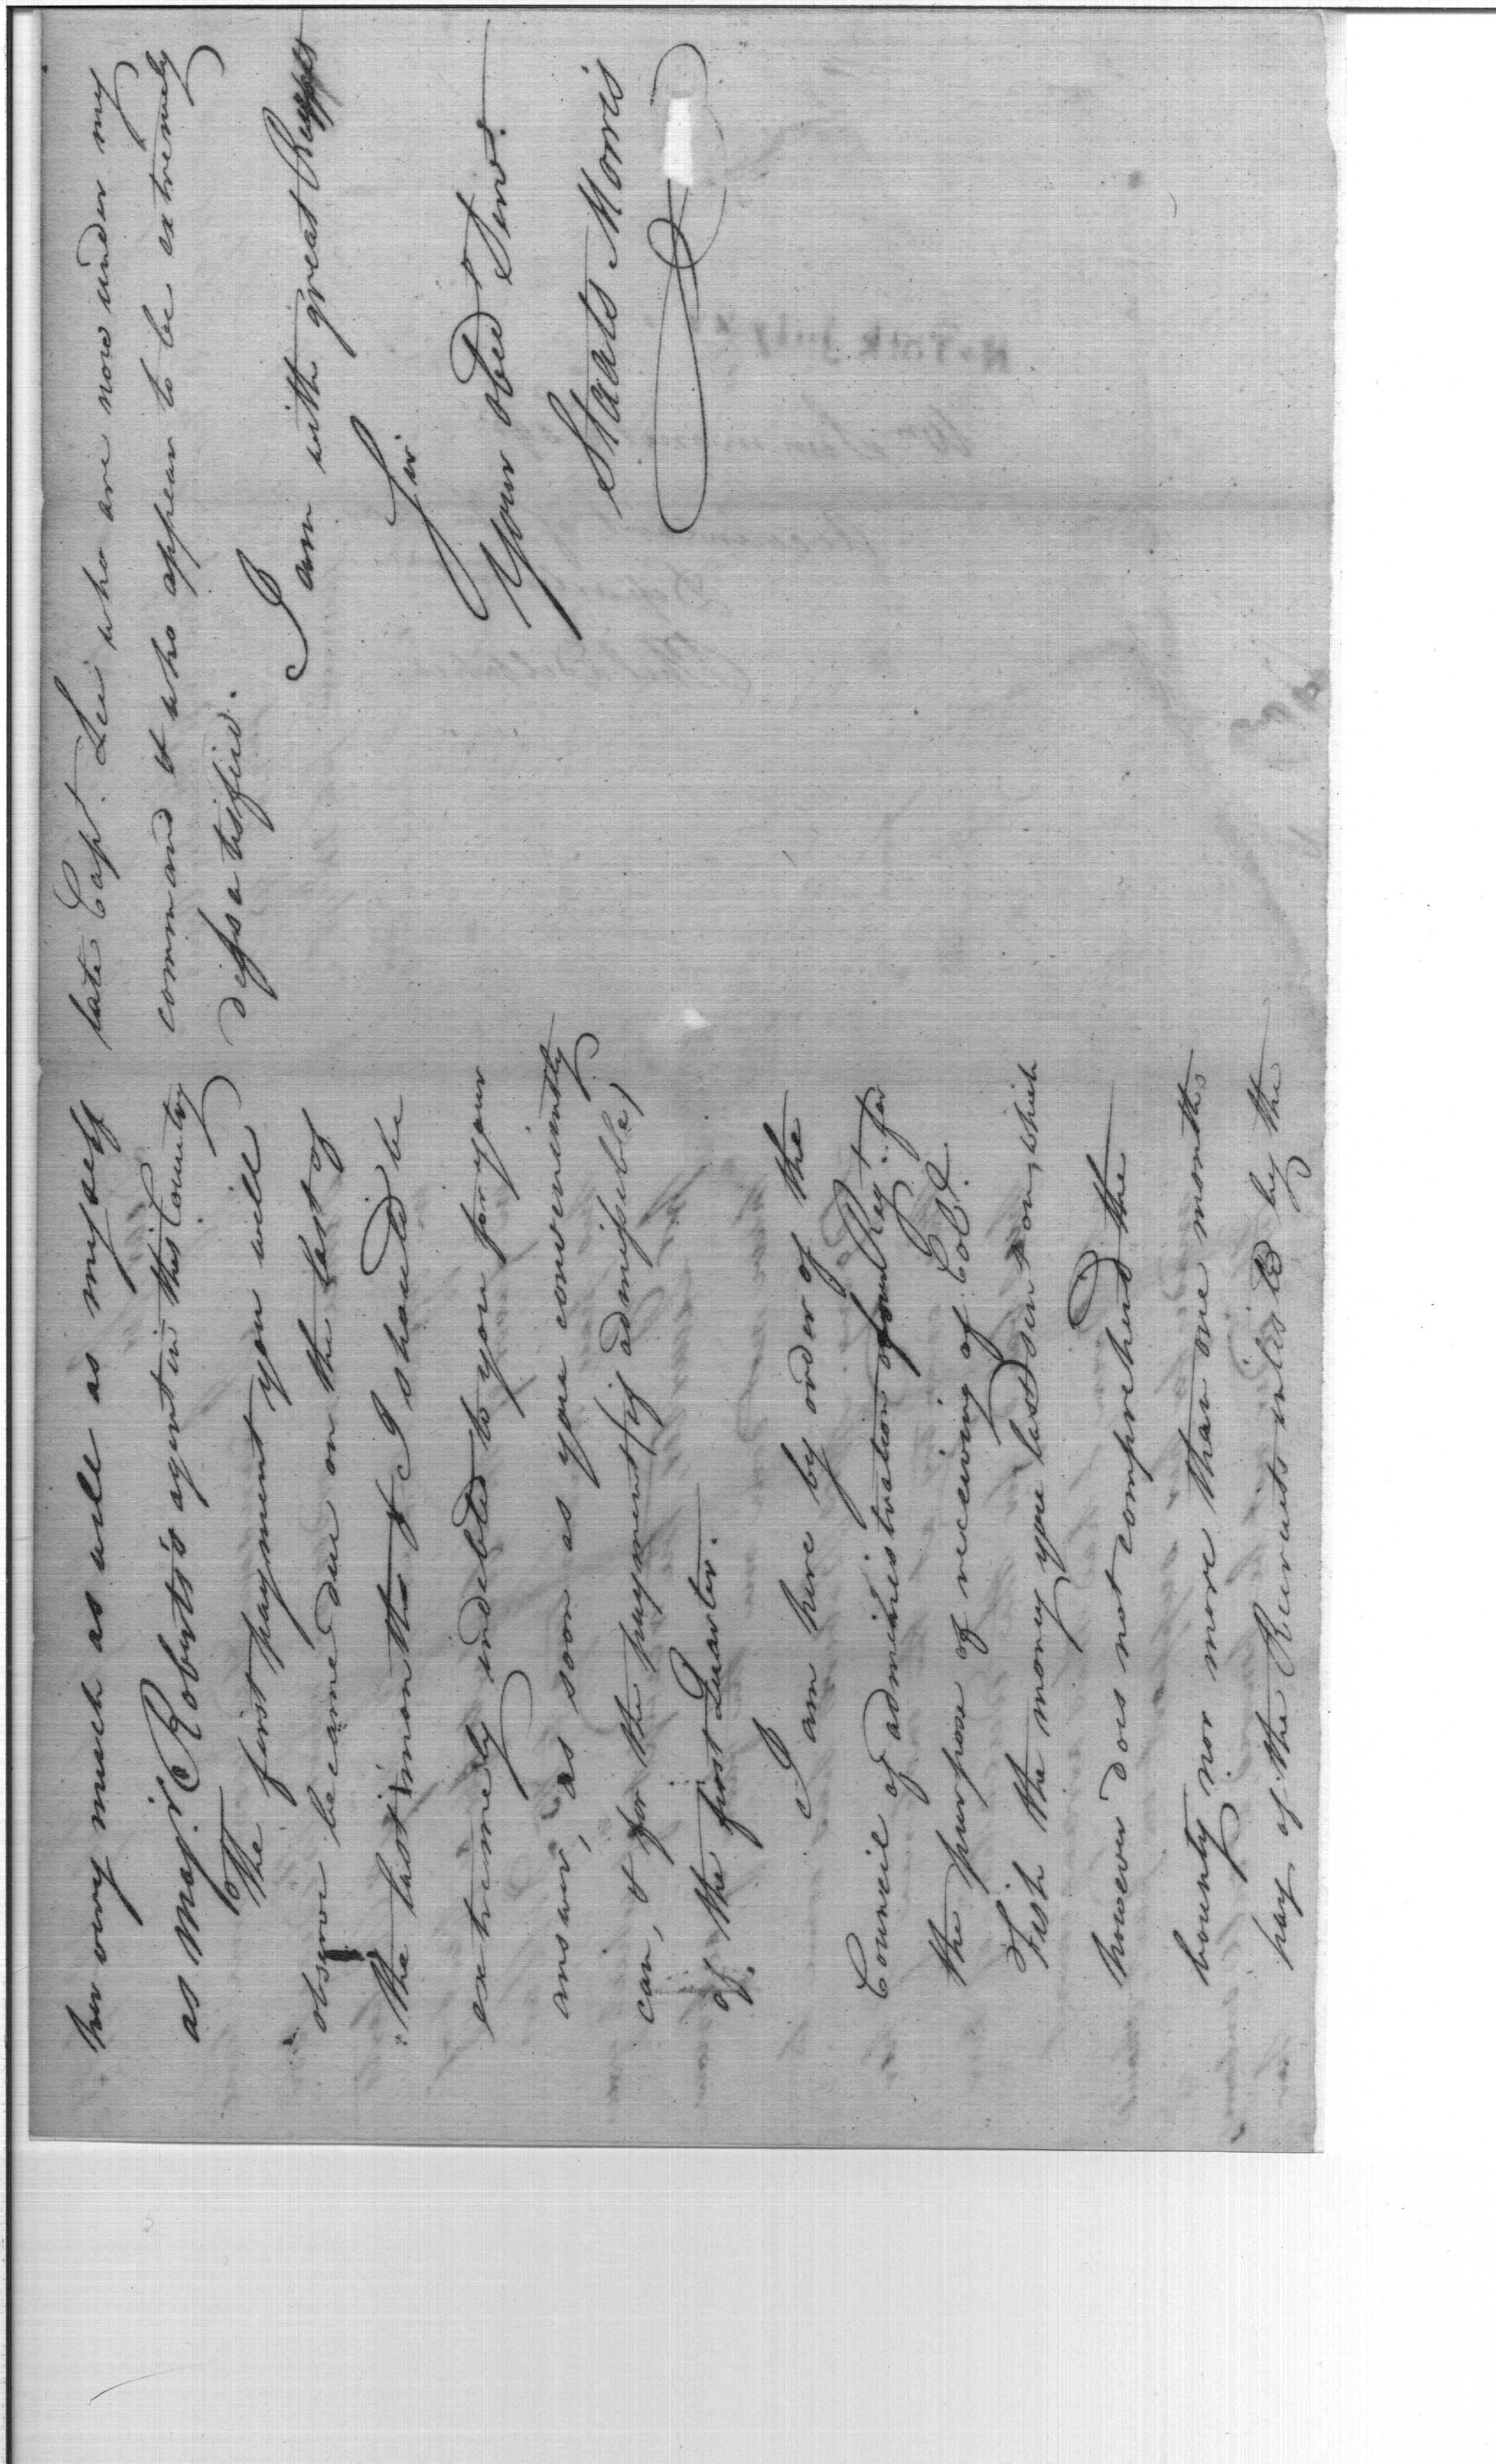 her very much as well as myself
as Majr. Roberts's agent in this Country
The first payment you will
observe became due on the last of
the last month & I should be
extremely indebted to you for your
answer, as soon as you conveniently
can, & for the payment (if admissible)
of the first Quarter.
I am here by order of the
Council of administration of our Regt. for
the purpose of receiving of Colo.
Fish the money you last sent on, which
however does not comprehend the
bounty nor more than one months
pay of the Recruits inlisted by the
late Capt. Lee who are now under my
command & who appear to be extremely
dissatisfied.
I am with great Respect
Sir
Your obed Serv.
Staats Morris